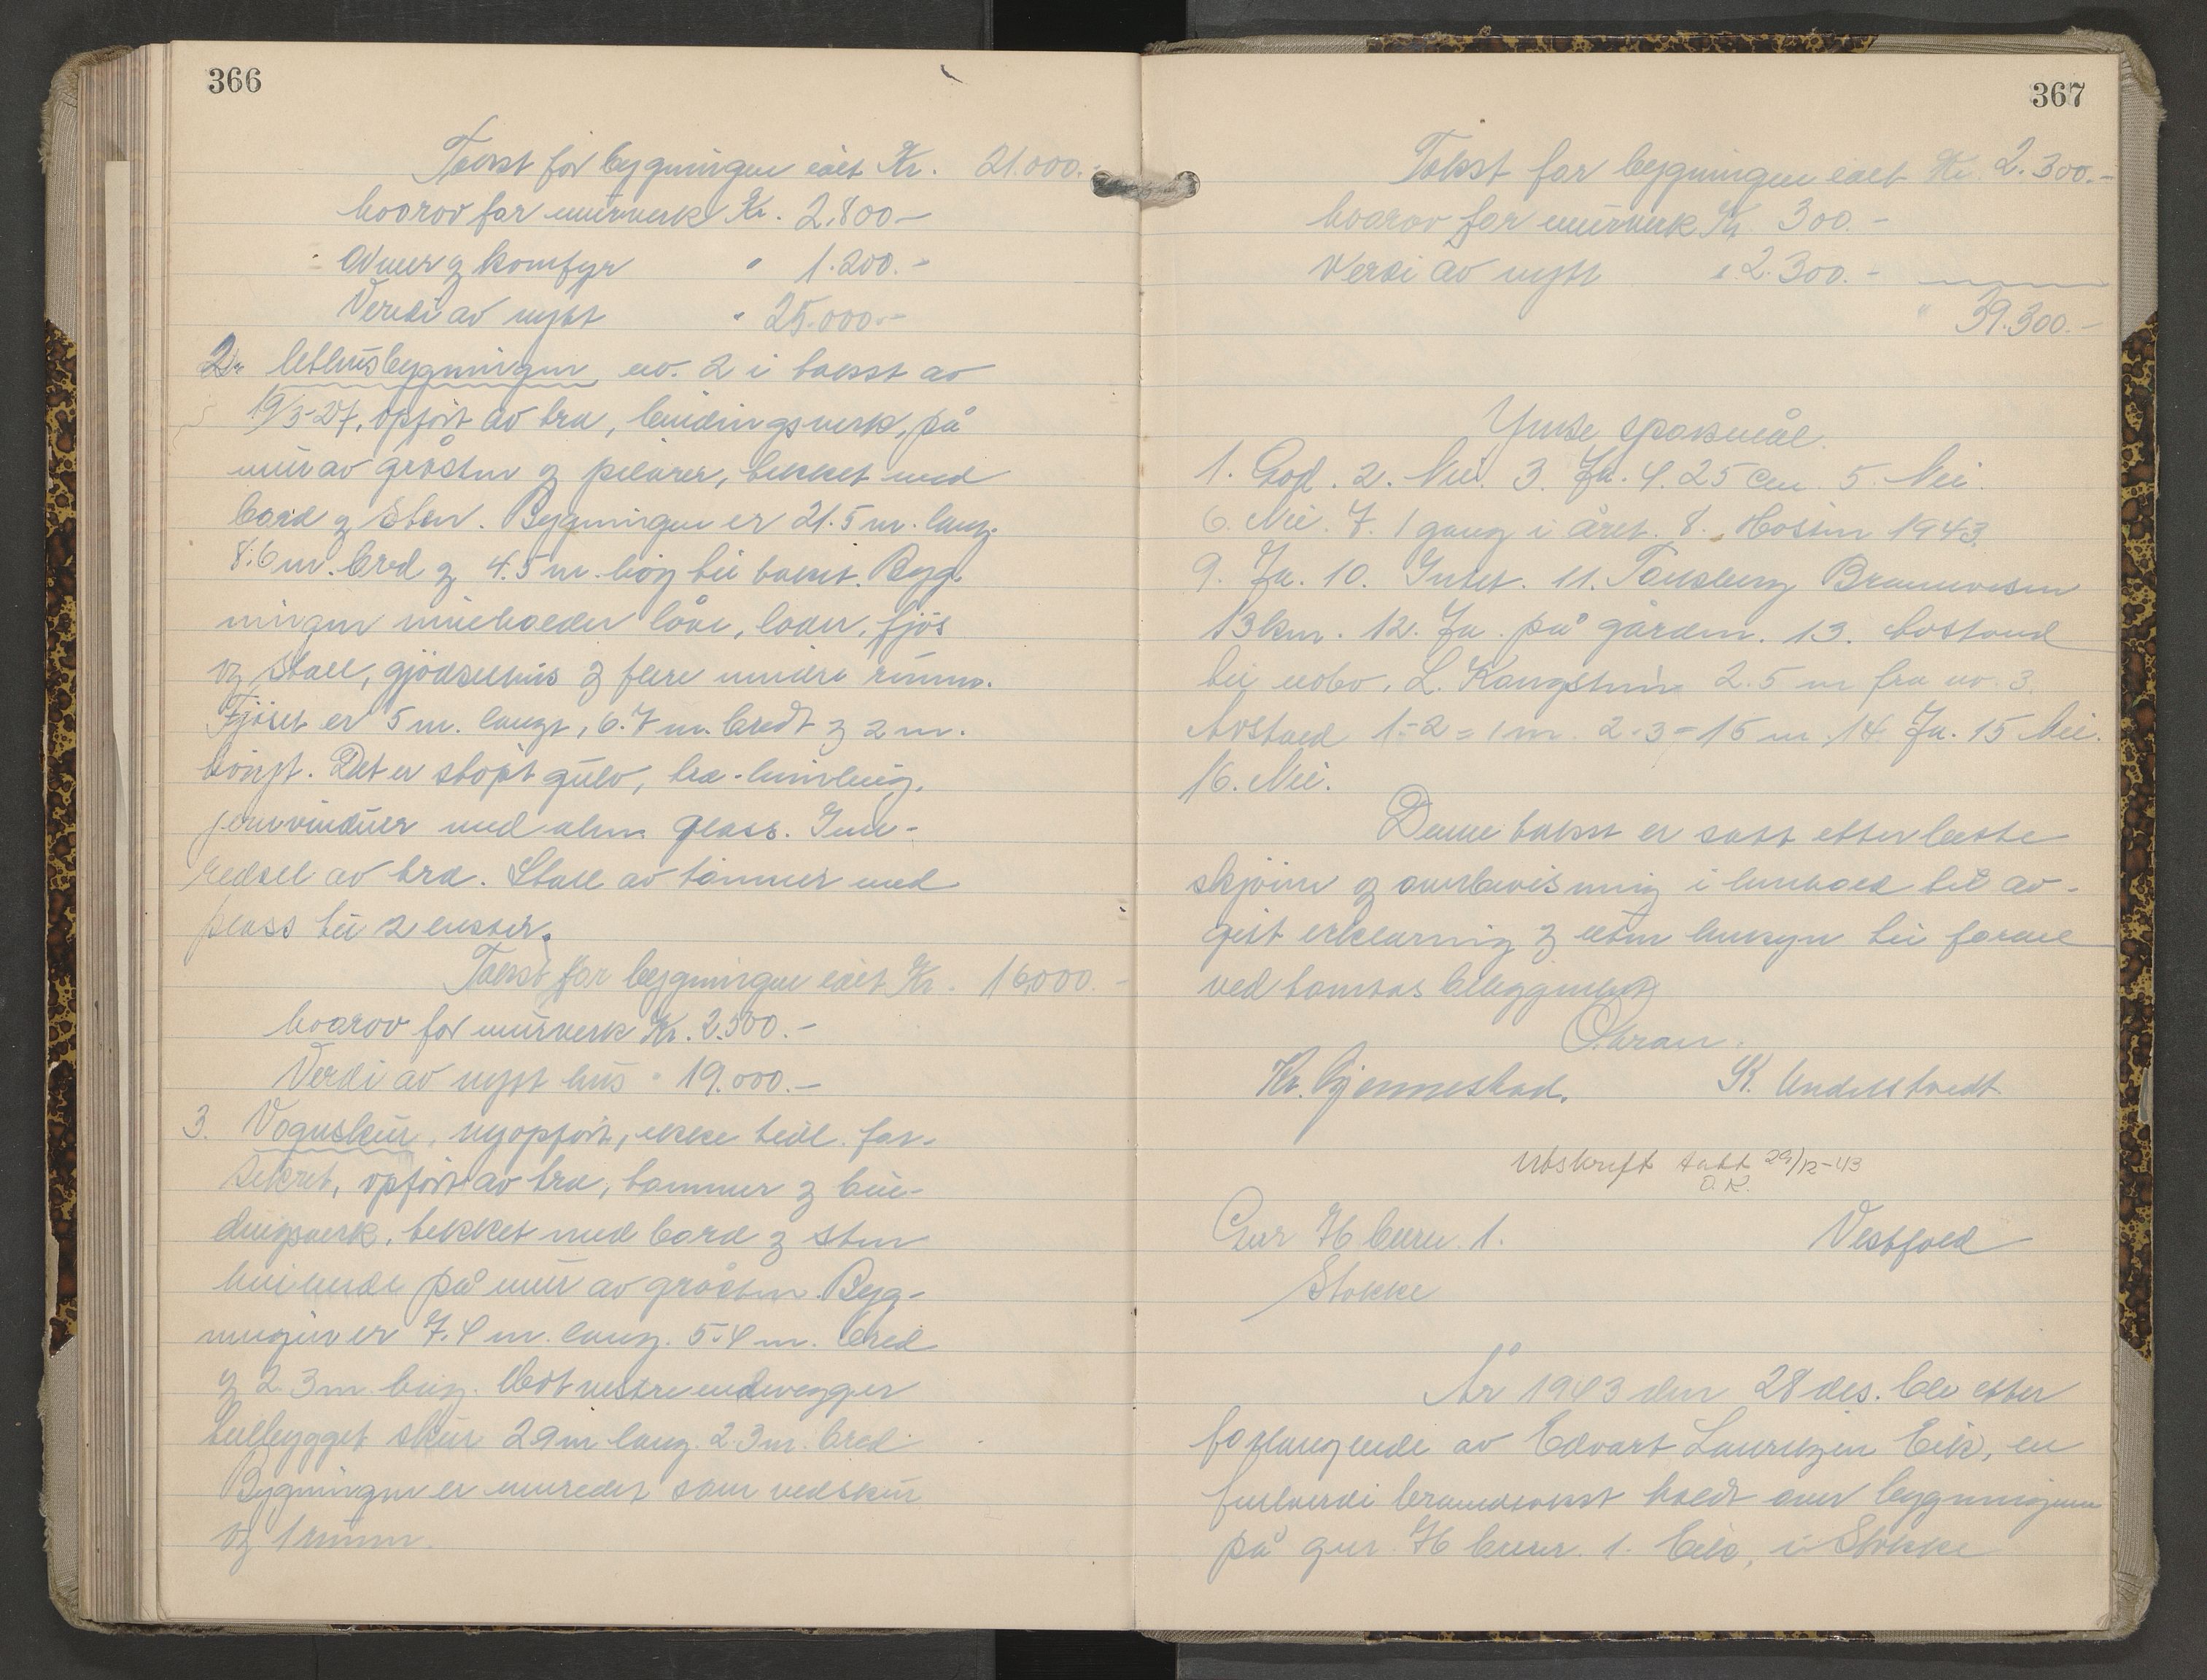 366
Takst for bygningen ialt Kr. 21.000.-
hvorav for murverk Kr. 2.800.-
Ovner og komfyr " 1.200.-
Verdi av nytt " 25.000.-
2. Uthusbygningen no. 2 i takst av
19/3-27, opført av tre, bindingsverk, på
mur av gråsten og pilarer, tekket med
bord og sten. Bygningen er 21.5 m. lang.
8.6 m. bred og 4.5 m. høy til taket. Byg
ningen inneholder låve, lader, fjøs
og stall, gjødselhus og flere mindre rumm.
Fjøset er 5 m. langt, 6.7 m. bredt og 2 m.
høigt. Det er støpt gulv, tre-himling.
jernvinduer med alm. glass. Inn-
redsel av tre. Stall av tømmer med
plass til 2 hester.
Takst for bygningen ialt Kr. 16.000.-
hvorav for murverk Kr. 2.500.-
Verdi av nytt hus " 19.000.-
3. Vognskur, nyopført, ikke tidl. for-
sikret, opført av tre, tømmer og bin-
dingsverk, tekket med bord og sten
hvilende på mur av gråsten. Byg-
ningen er 7.4 m. lang. 5.4 m. bred
og 2.3 m. høig. Mot vestre endevegg er
tilbygget skur 2.9 m lang. 2.3 m. bred
Bygningen er innredet som vedskur
og 1 rumm.
367
Takst for bygningen ialt Kr. 2.300.-
hvorav for murverk Kr. 300.-
Verdi av nytt " 2.300.-
" 39.300.-
Ymse spørsmål.
1. God. 2. Nei. 3. Ja. 4. 25 cm. 5. Nei.
6. Nei. 7. 1 gang i året. 8. Høsten 1943.
9. Ja. 10. Intet. 11. Tønsberg Brannvesen
13 km. 12. Ja. på gården. 13. Avstand
til nabo, L. 2.5 m fra no. 3.
Avstand 1-2 = 1 m. 2-3 = 15 m. 14. Ja. 15 Nei.
16. Nei.
Denne takst er satt efter beste
skjønn og overbevisning i henhold til av-
gitt erklæring og uten hensyn til fordel
ved tomtas beliggenhet
Kr. Gjennestad. K. Understvedt
Utskrift tatt 29/12-43
O.K.
Gnr 76 bnr. 1. Vestfold
Stokke
År 1943 den 28 des. blev efter
forlangende av Edvart Lauritzen Eik, en
fullverdi branntakst holdt over bygningene
på gnr. 76 bnr. 1. Eik, i Stokke